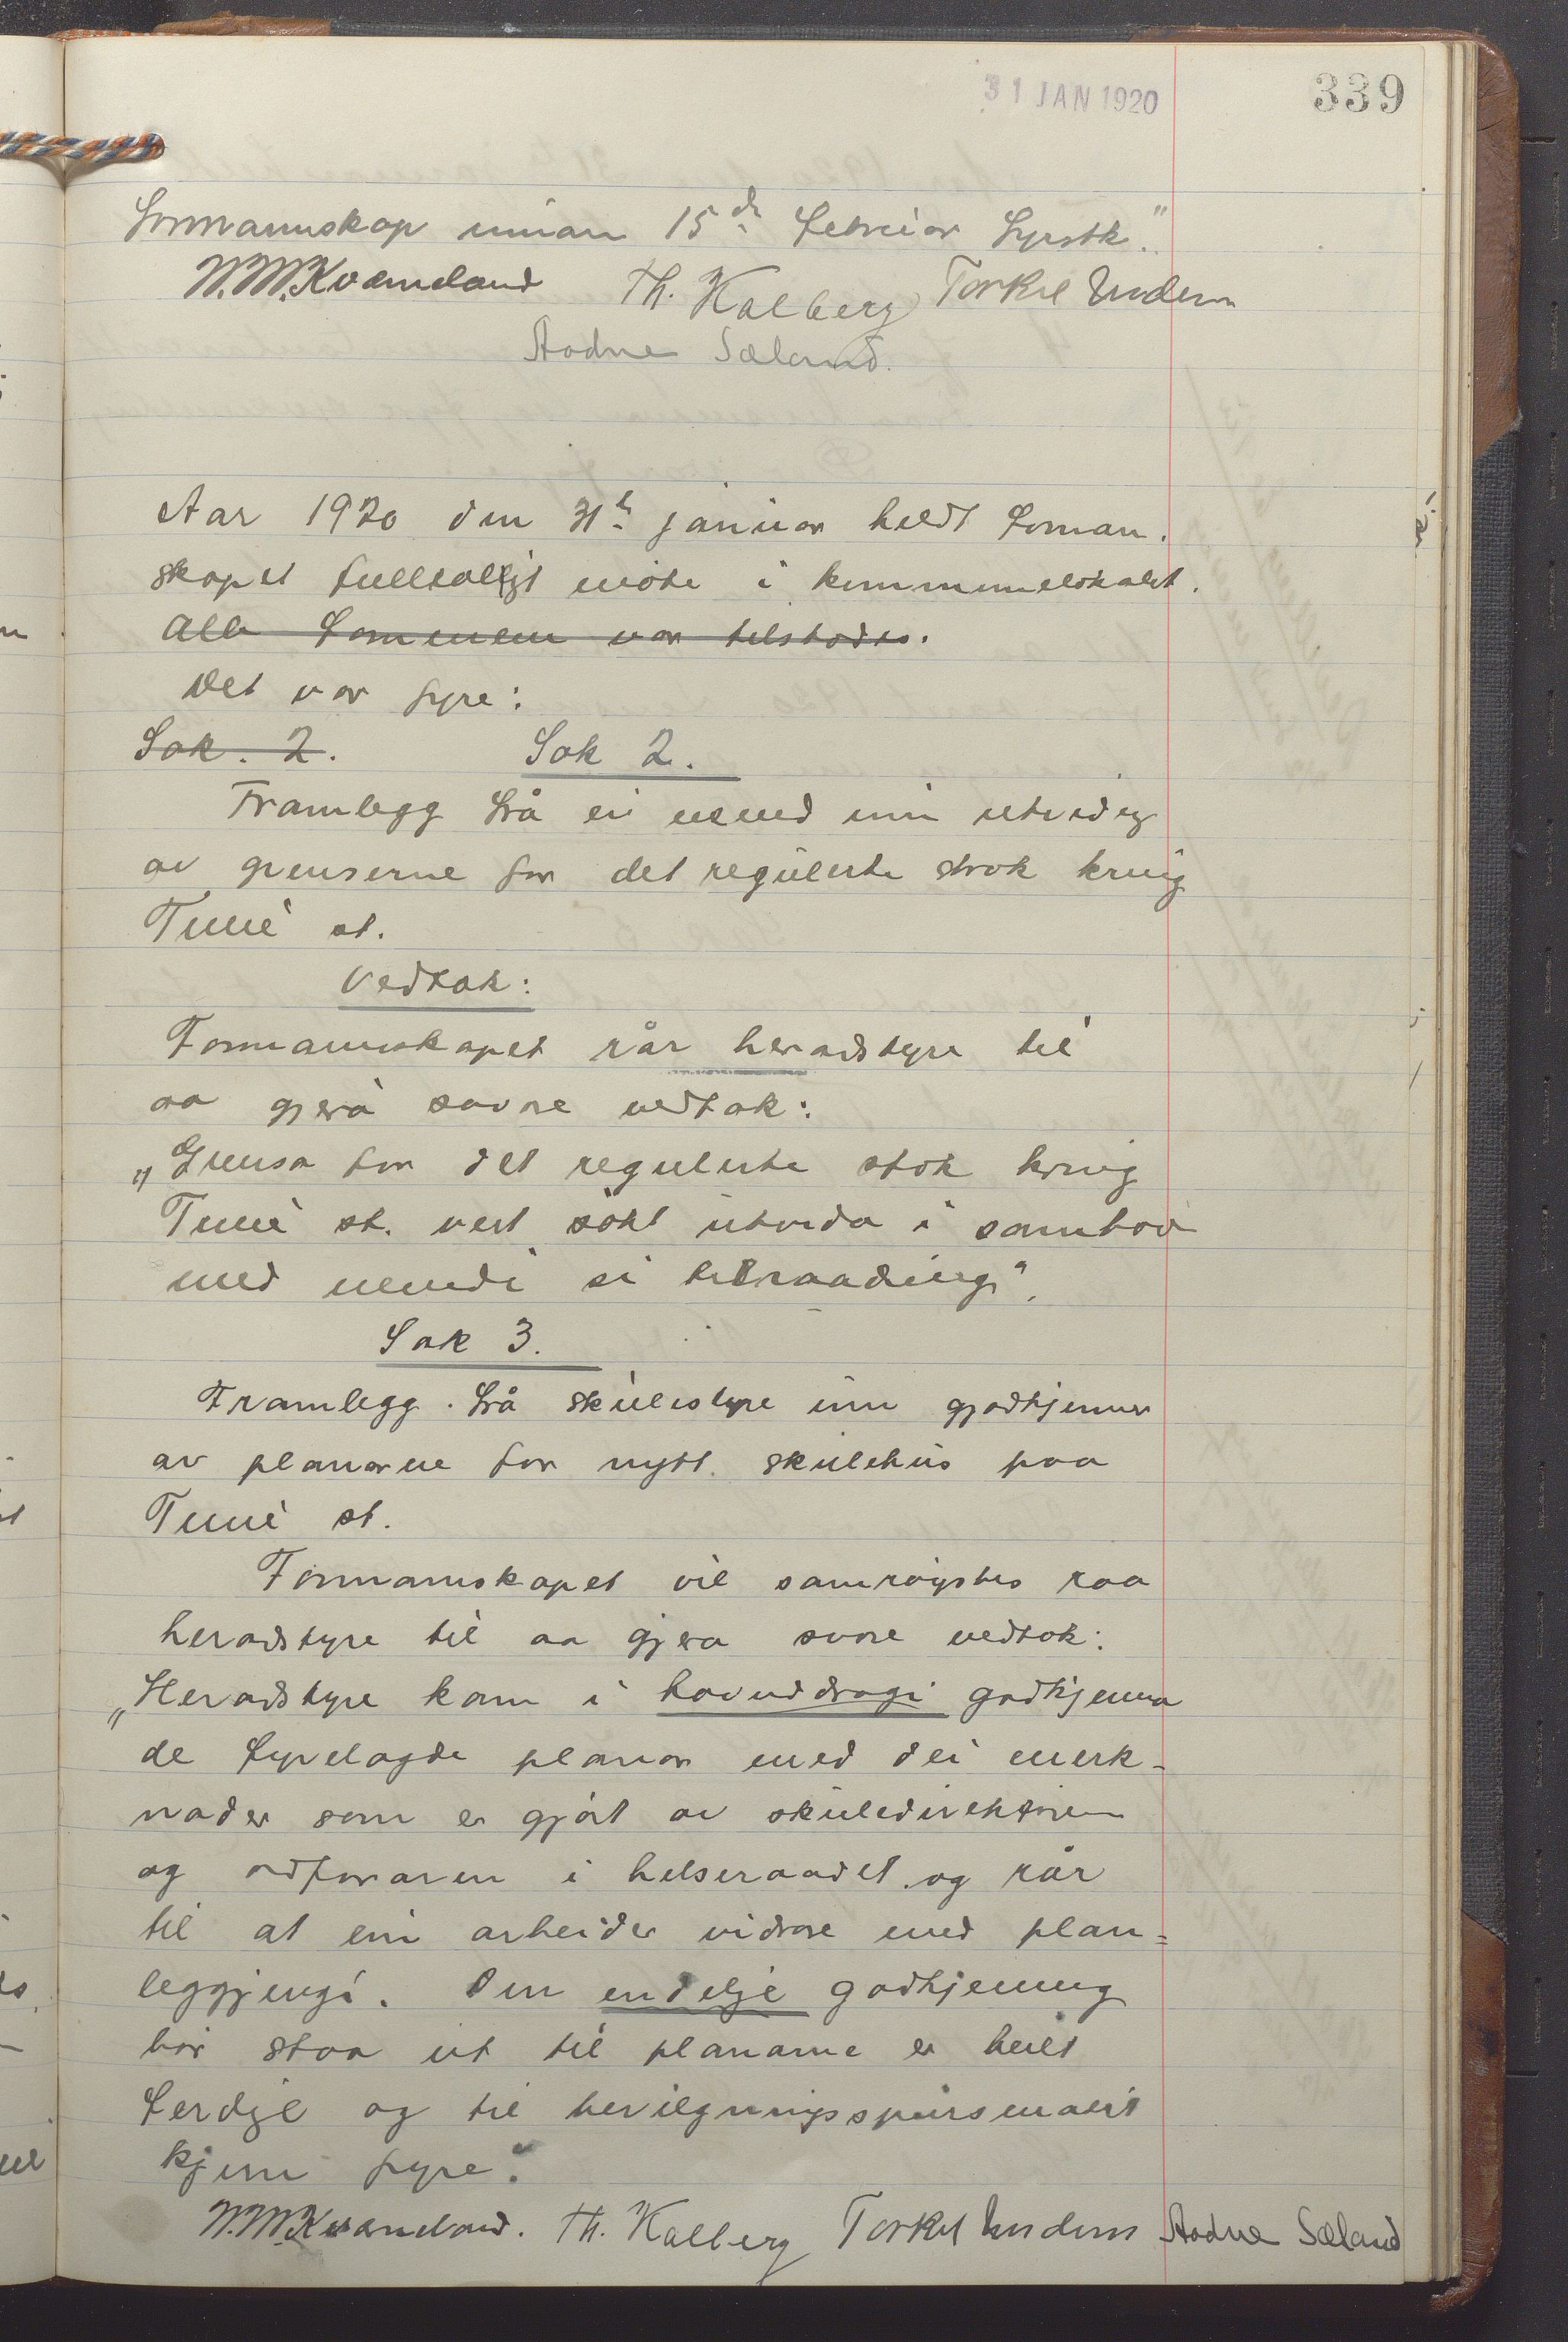 31 JAN 1920
339
formannskap innan 15de februar fyrstk."
W.W. Kvameland Th. Kalberg Torkel Undem
Aadne Sæland.
Aar 1920 den 31te januar heldt forman.
skapet fulltalligt møte i kommunelokalet.
Alle formenn var tilstades.
Det var fyre:
Sak. 2. Sak 2.
Framlegg frå ei nemnd um utviding
av grenserne for det regulerte strok kring
Time st.
Vedtak:
Formannskapet rår heradstyre til
aa gjera sovore vedtak:
„Grensa for det regulerte strok kring
Time st. vert søkt utvida i samhøve
med nemndi si tilraading".
Sak 3.
Framlegg frå skulestyre um godkjenning
av planarne for nytt skulehus paa
Time st.
Formannskapet vil samrøystes raa
heradstyre til aa gjera sovore vedtak:
„Heradstyre kann i hovuddragi godkjenna
de fyrelagde planar med dei merk-
nader som er gjort av skuledirektøren
og ordføraren i helseraadet og rår
til at ein arbeider vidare med plan-
leggjingi. Den endelge godkjenning
bør staa ut til planarne er heilt
ferdige og til bevilgningsspursmaalet
kjem fyre."
W.W. Kvameland. Th. Kalberg Torkel Undem Aadne Sæland